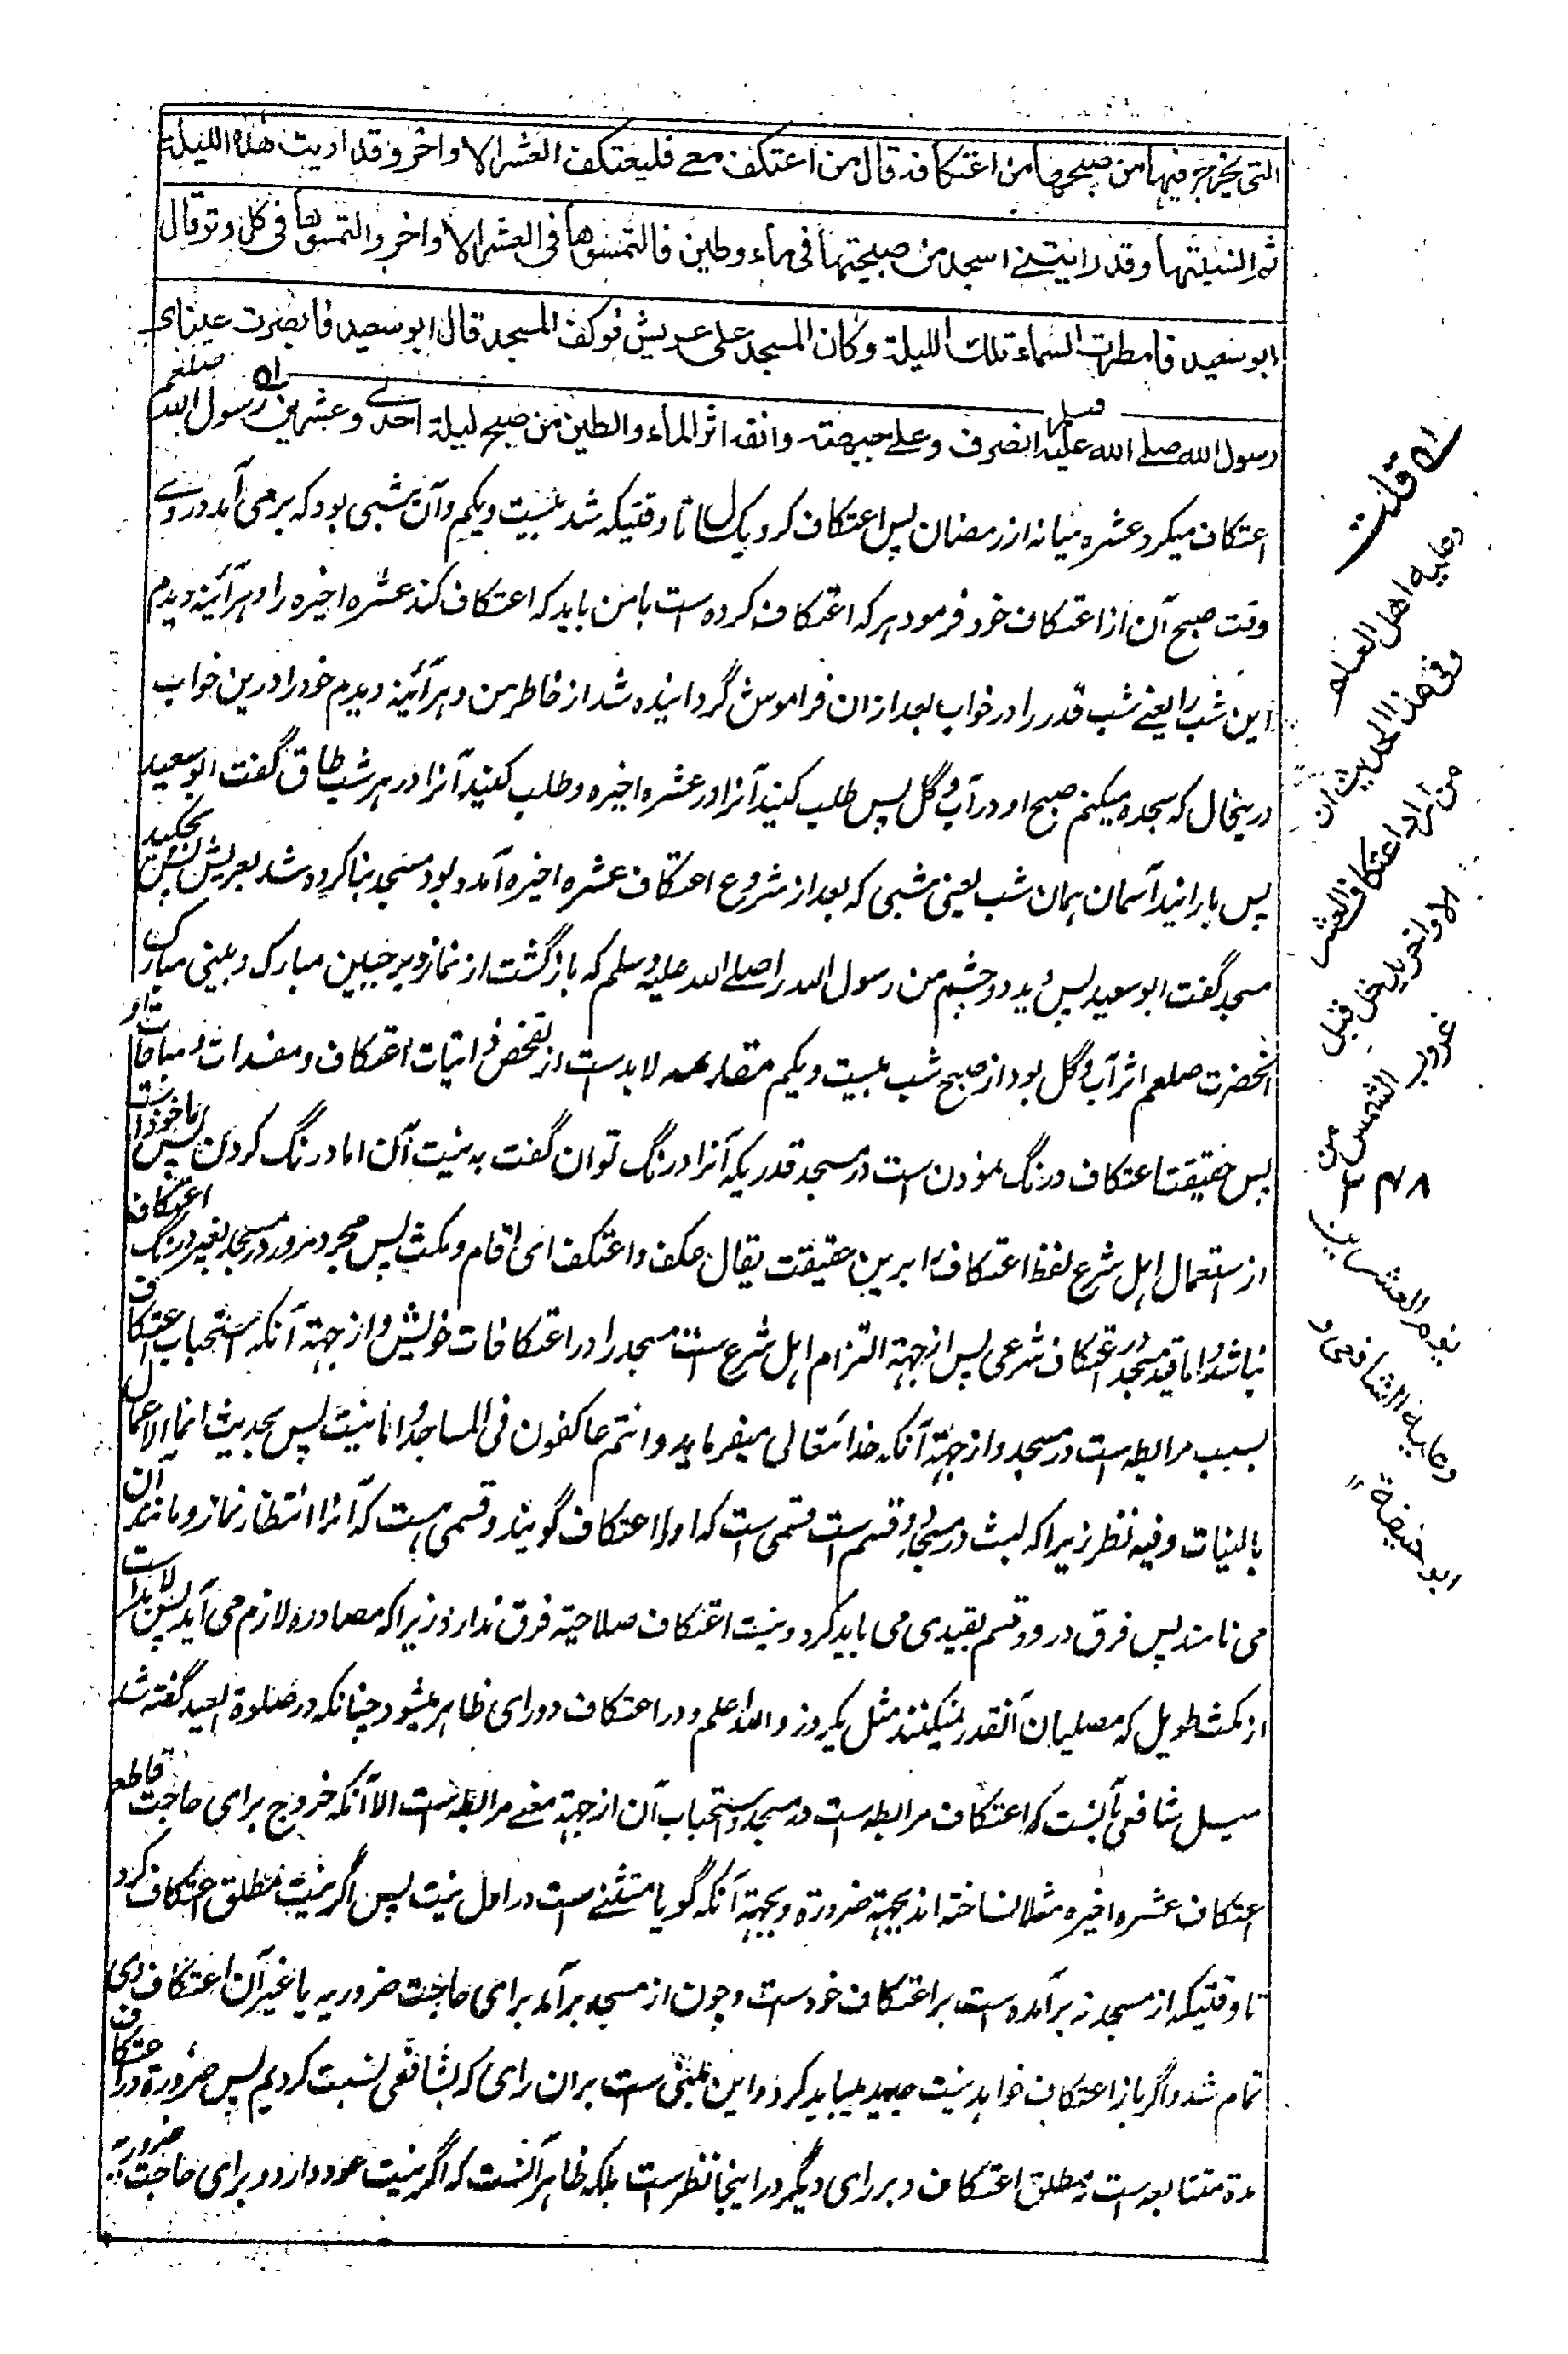 التی یخرج فیها من صبیحتها من اعتکافه قال من اعتکف معے فلیعتکف العشر الاواخر وقد اریت هذه اللیلة
ثم انسیتها وقد رایتنے اسجد من صبیحتها فی ماء وطین فالتمسوها فی العشر الاواخر والتمسوها فی کل وتر قال
ابو سعید فامطرت السماء تلک اللیلة وکان المسجد علی عریش فوکف المسجد قال ابو سعید فابصرت عینای
رسول الله صلے الله علیه وسلم انصرف وعلے جبهته وانفه اثر الماء والطین من صبح لیلة احدے وعشرین رسول الله صلعم
اعتکاف میکرد عشره میانه از رمضان پس اعتکاف کرد یک سال تا وقتیکه شد بست ویکم وآن شبی بود که بر می آمد در وے
وقت صبح آن از اعتکاف خود فرمود هر که اعتکاف کرده است با من باید که اعتکاف کند عشره اخیره را وهر آئینه دیدم
این شب را یعنے شب قدر را در خواب بعد ازان فراموش گردانیده شد از خاطر من وهر آئینه دیدم خود را درین خواب
درینحال که سجده میکنم صبح او در آب وگل پس طلب کنید آنرا در عشره اخیره وطلب کنید آنرا در هر شب طاق گفت ابو سعید
پس بارانید آسمان همان شب یعنی شبی که بعد از شروع اعتکاف عشره اخیره آمد وبود مسجد بنا کرده شد بعریش پس بچکید
مسجد گفت ابو سعید پس دید دو چشم من رسول الله را صلے الله علیه وسلم که بازگشت از نماز وبر جبین مبارک وبینی مبارک
آنحضرت صلعم اثر آب وگل بود از صبح شب بست ویکم مقدمه لابدست از تفحص ذاتیات اعتکاف ومفسدات ومنافات او
پس حقیقت اعتکاف درنگ نمودن است در مسجد قدریکه آنرا درنگ توان گفت به نیت آن اما درنگ کردن پس ماخوذ است
از استعمال اهل شرع لفظ اعتکاف را برین حقیقت یقال عکف واعتکف ای اقام ومکث پس مجرد مرور در مسجد بغیر درنگ اعتکاف
نباشد واما قید مسجد در اعتکاف شرعی پس از جهة التزام اهل شرع ست مسجد را در اعتکافات خویش واز جهة آنکه استحباب اعتکاف
بسبب مرابطه است در مسجد واز جهة آنکه خدا تعالی میفرماید وانتم عاکفون فی المساجد واما نیت پس بحدیث انما الاعمال
بالنیات وفیه نظر زیرا که لبث در مسجد دو قسم است قسمی است که او را اعتکاف گویند وقسمی هست که آنرا انتظار نماز ومانند آن
می نامند پس فرق در دو قسم بقیدی می باید کرد ونیت اعتکاف صلاحیة فرق ندارد زیرا که مصادره لازم می آید پس لابد است
از مکث طویل که مصلیان آنقدر نمیکنند مثل یکروز والله اعلم ودر اعتکاف دو رای ظاهر میشود چنانکه در صلوة العید گفته شد
میل شافعی بآنست که اعتکاف مرابطه است در مسجد واستحباب آن از جهة معنے مرابطه است الا آنکه خروج برای حاجت قاطع
اعتکاف عشره اخیره مثلا نساخته اند بجهة ضرورة وبجهة آنکه گویا مستثنے است در اول نیت پس اگر نیت مطلق اعتکاف کرد
تا وقتیکه از مسجد نه برآمده است بر اعتکاف خودست وچون از مسجد برآمد برای حاجت ضروریه یا غیر آن اعتکاف وی
تمام شد واگر باز اعتکاف خواهد نیت جدید میباید کرد واین مبنی است بران رای که بشافعی نسبت کردیم پس ضرورة در اعتکاف
مدة متتابعه است نه مطلق اعتکاف وبر رای دیگر در اینجا نظر است بلکه ظاهر آنست که اگر نیت عود دارد وبرای حاجت ضروریه
قلت
وعلیه اهل العلم
وفی هذا الحدیث ان
من اراد اعتکاف العشر
الاواخر یدخل قبل
غروب الشمس من
یوم العشرین
وعلیه الشافعی و
ابو حنیفة ۱۲